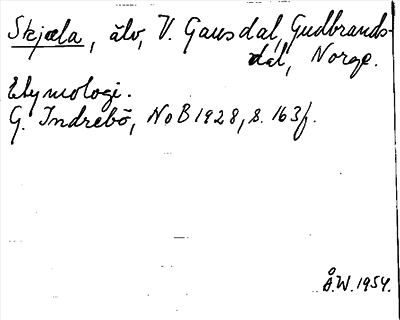 Skjæla, älv, V. Gausdal, Gudbrands-
dal, Norge.
Etymologi.
G. Indrebö, NoB 1928, s. 163f.
Å.W. 1954.